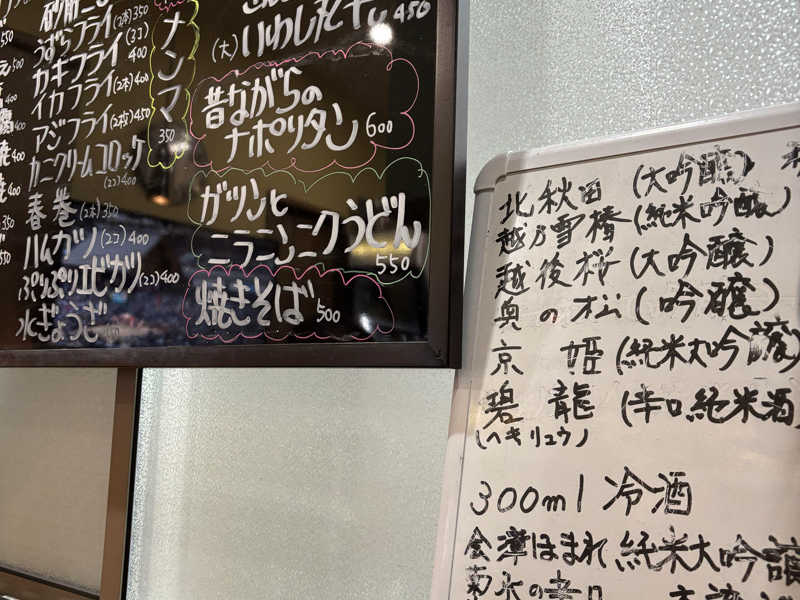 うずらフライ(2本)350
カキフライ(3コ)400
イカフライ(2本)400
アジフライ(2枚)450
カニクリームコロッケ
(2コ)400
春巻(2本)350
ハムカツ(2コ)400
ぷりぷりエビカツ(2コ)400
水ぎょうざ
ナンマ
350
450
(大)いわし丸干
昔ながらの
ナポリタン600
ガツンと
ニラニンニクうどん
550
焼きそば500
北秋田(大吟醸)
越乃雪椿(純米吟醸)
越後桜(大吟醸)
奥の松(吟醸)
京姫(純米大吟醸)
碧龍(辛口純米酒)
(ヘキリュウ)
300ml冷酒
会津ほまれ純米大吟醸
菊水の辛口